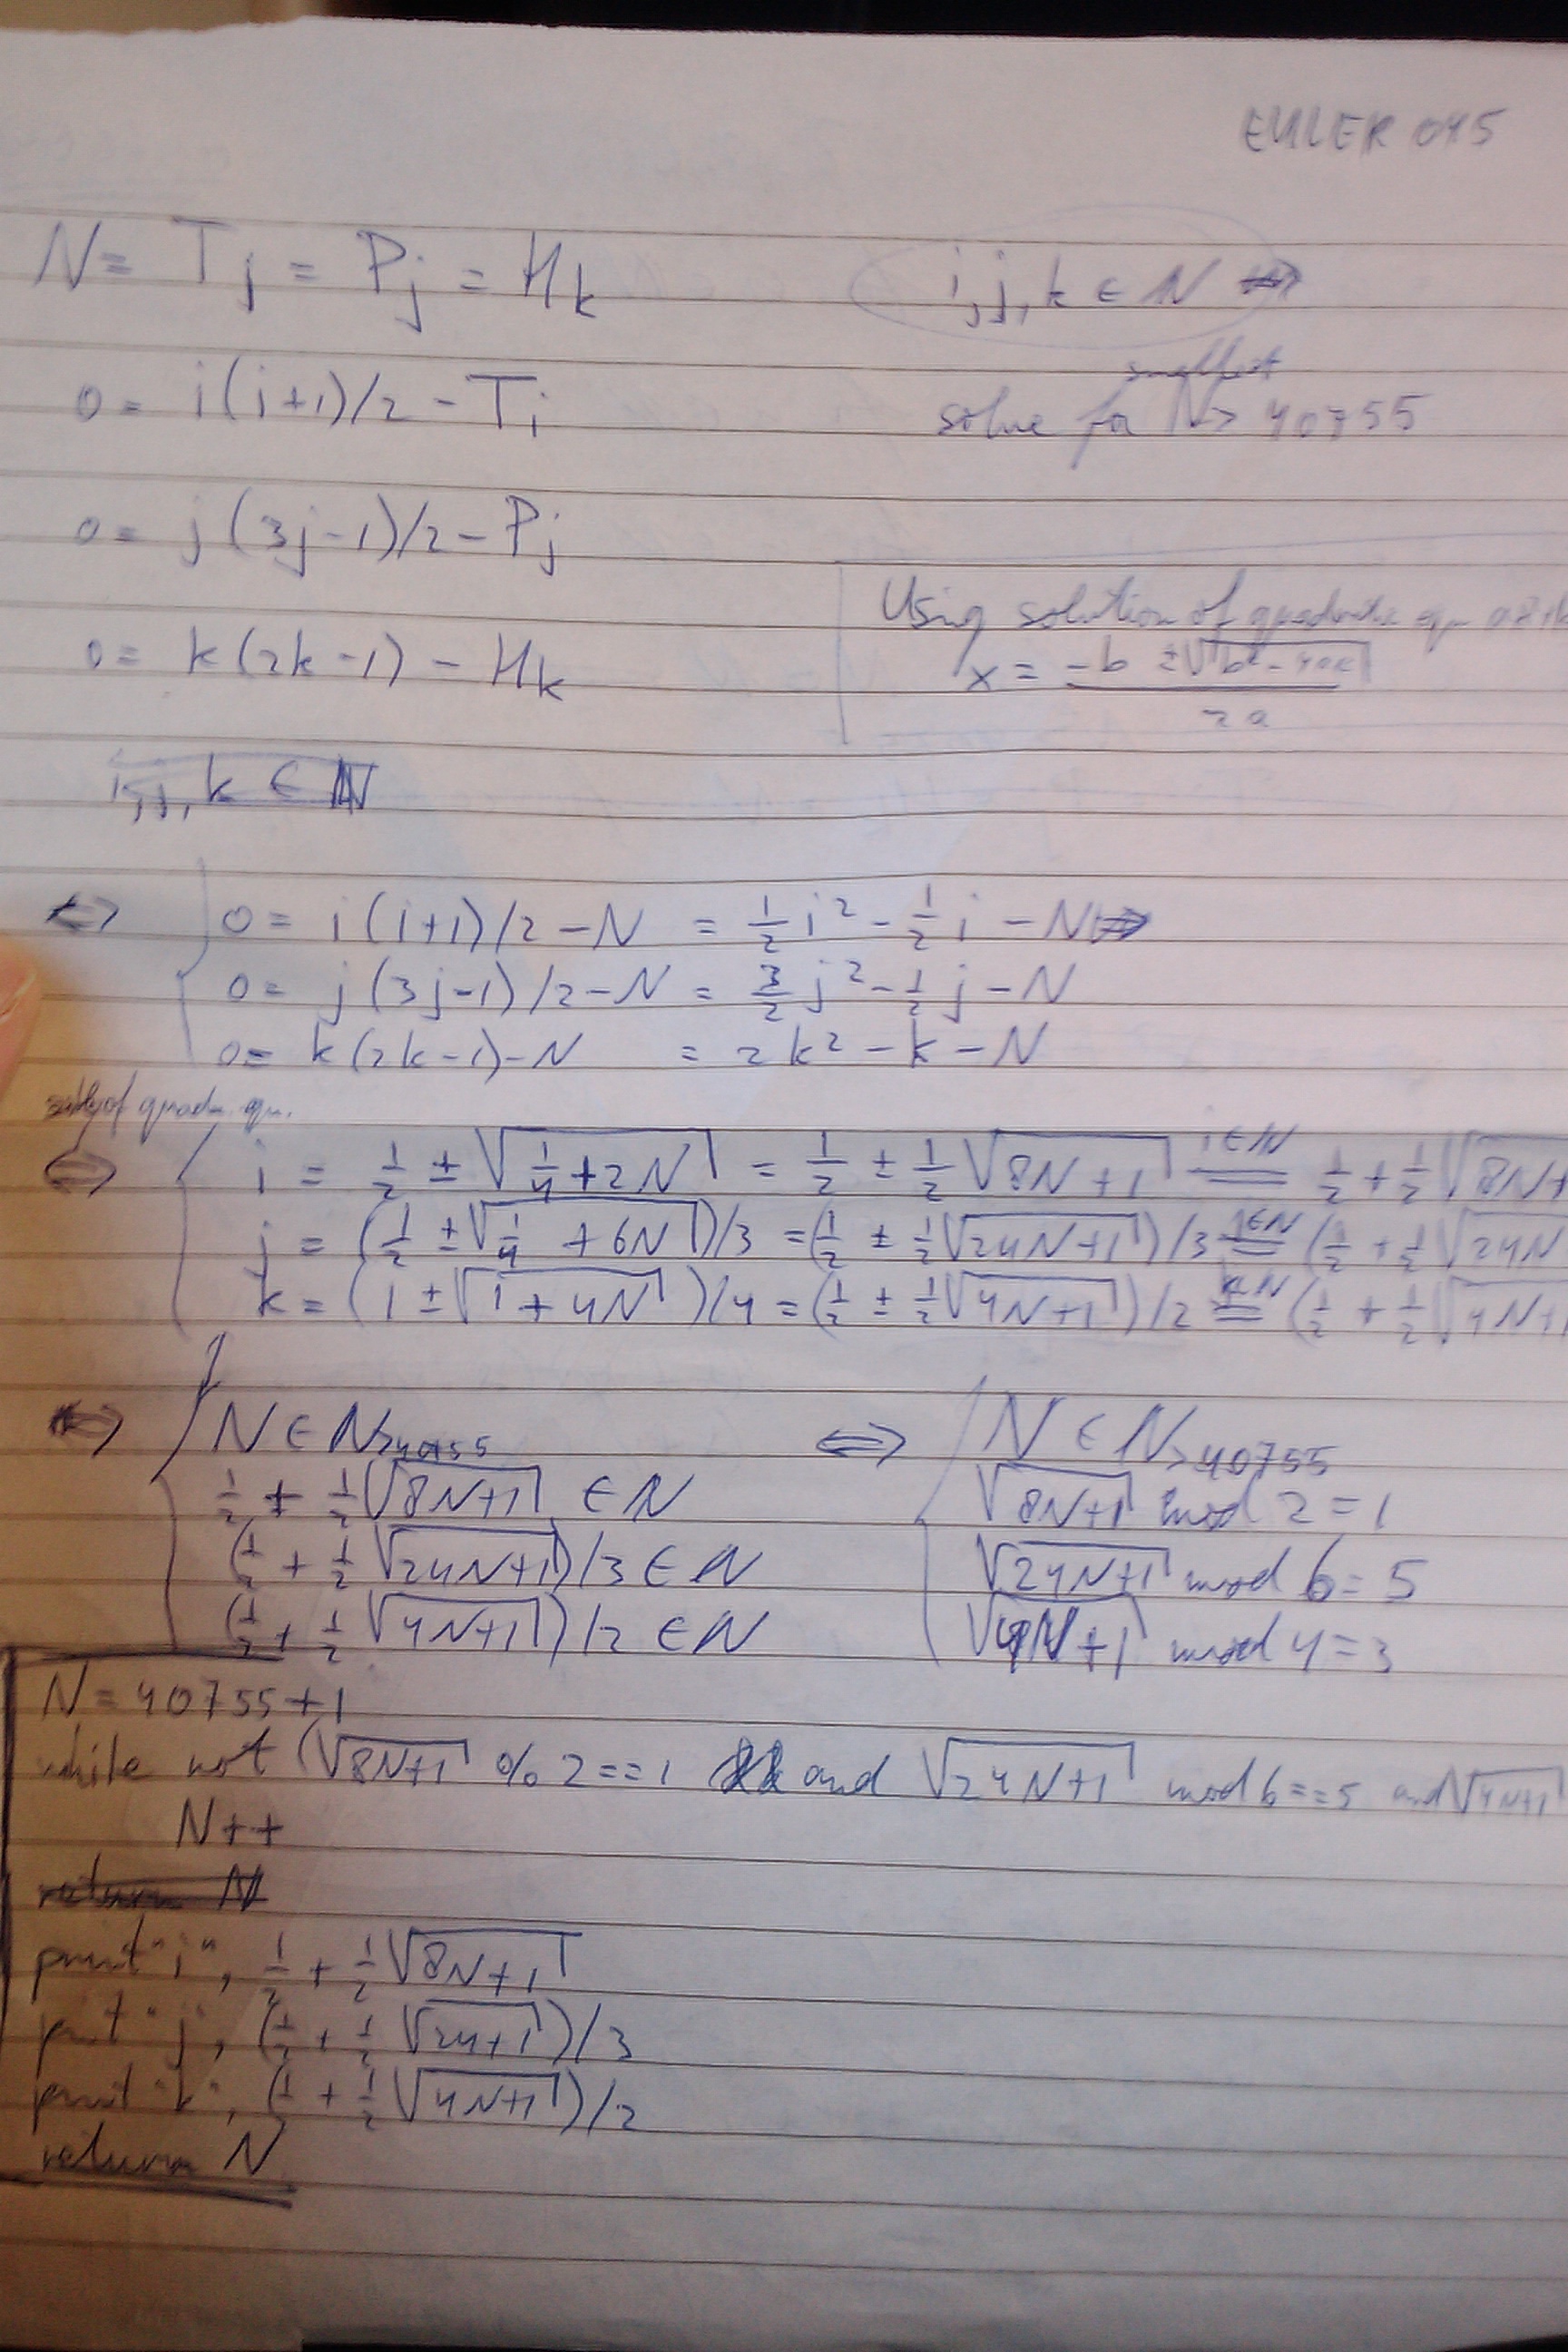 EULER 045
N = T_j = P_j = H_k i, j, k ∈ N ⇔
smallest
0 = i(i+1)/2 - T_i solve for N > 40755
0 = j(3j-1)/2 - P_j
Using solution of quadratic eqn
0 = k(2k-1) - H_k x = (-b ± √(b² - 4ac)) / 2a
i, j, k ∈ N
⇔ 0 = i(i+1)/2 - N = 1/2 i² - 1/2 i - N ⇔
0 = j(3j-1)/2 - N = 3/2 j² - 1/2 j - N
0 = k(2k-1) - N = 2k² - k - N
of quadr. eqn.
⇔ i = 1/2 ± √(1/4 + 2N) = 1/2 ± 1/2 √(8N+1) =(i∈N)= 1/2 + 1/2 √(8N+
j = (1/2 ± √(1/4 + 6N))/3 = (1/2 ± 1/2 √(24N+1))/3 =(j∈N)= (1/2 + 1/2 √(24N
k = (1 ± √(1 + 4N))/4 = (1/2 ± 1/2 √(4N+1))/2 =(k∈N)= (1/2 + 1/2 √(4N+1
⇔ N ∈ N_>40755 ⇔ N ∈ N_>40755
1/2 + 1/2 √(8N+1) ∈ N √(8N+1) mod 2 = 1
(1/2 + 1/2 √(24N+1))/3 ∈ N √(24N+1) mod 6 = 5
(1/2 + 1/2 √(4N+1))/2 ∈ N √(4N+1) mod 4 = 3
N = 40755+1
while not (√(8N+1) % 2 == 1 and √(24N+1) mod 6 == 5 and √(4N+1)
N++
return N
print "i", 1/2 + 1/2 √(8N+1)
print "j", (1/2 + 1/2 √(24+1))/3
print "k", (1/2 + 1/2 √(4N+1))/2
return N